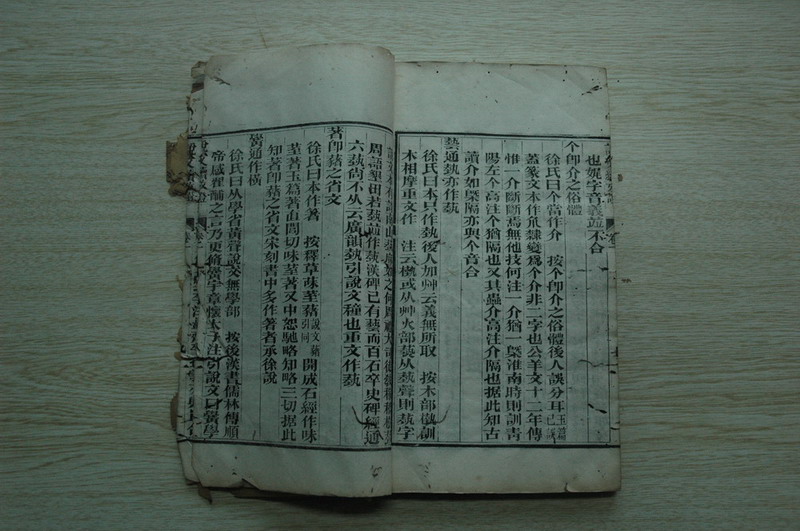 也娓字音義並不合
个卽介之俗體
徐氏曰个當作介 按个卽介之俗體後人誤分耳玉篇已誤
蓋篆文本作爪隸變爲个介非二字也公羊文十二年傳
惟一介斷斷焉無他技何注一介猶一槩淮南時則訓靑
陽左个高注个猶隔也又其蟲介高注介隔也据此知古
讀介如槩隔亦與个音合
藝通埶亦作蓺
徐氏曰本只作埶後人加艸云義無所取 按木部檄訓
木相摩重文作 注云檄或从艸火部爇从蓺聲則蓺字
周語墾田若蓺並作蓺漢碑已有藝而百石卒史碑經通
六蓺尚不从云廣韻蓺引說文種也重文作蓺
著卽藸之省文
徐氏曰本作著 按釋草菋荎藸說文藸引同 開成石經作味
荎著玉篇著直間切味荎著又中恕馳略知略三切据此
知著卽藸之省文宋刻書中多作著者承徐說
黌通作橫
徐氏曰从學省黃聲說文無學部 按後漢書儒林傳順
帝感翟酺之言乃更脩黌字章懷太子注引說文曰黌學